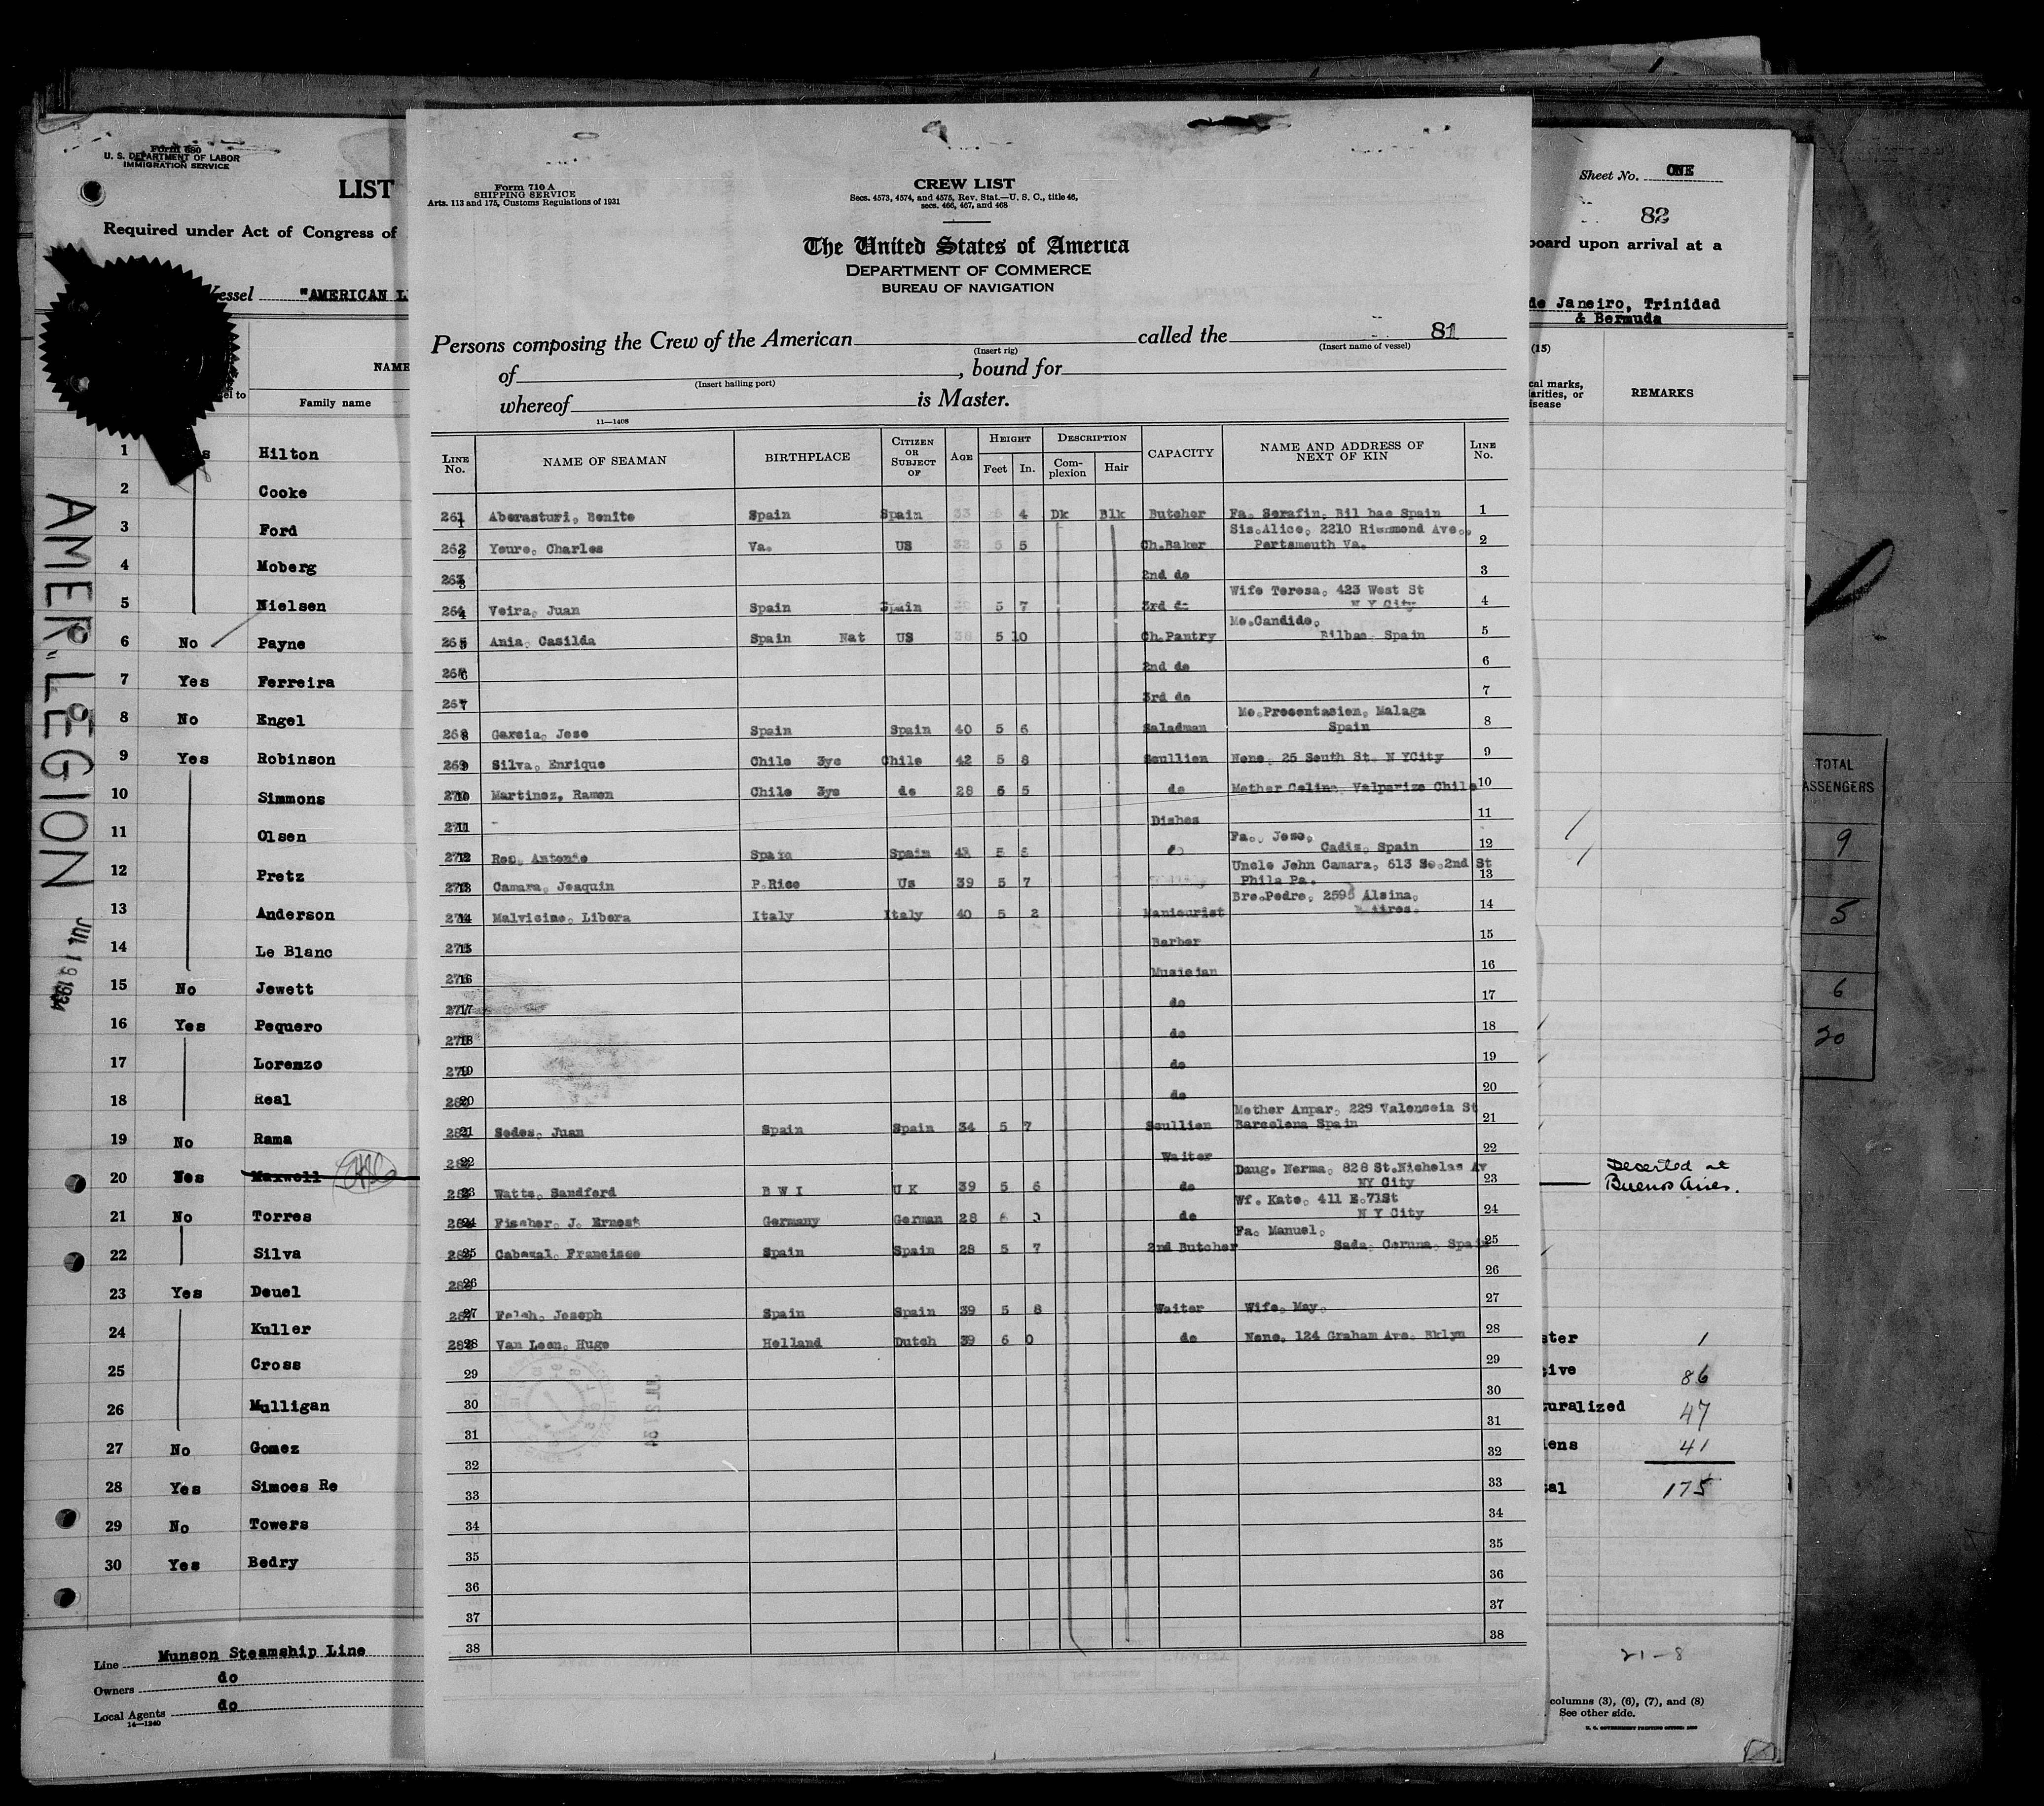 Form 680
U. S. DEPARTMENT OF LABOR
IMMIGRATION SERVICE
LIST
Required under Act of Congress of
Vessel "AMERICAN L
NAME
Family name
1 Hilton
2 Cooke
3 Ford
4 Moberg
5 Nielsen
6 No Payne
7 Yes Ferreira
8 No Engel
9 Yes Robinson
10 Simmons
11 Olsen
12 Pretz
13 Anderson
14 Le Blanc
15 No Jewett
16 Yes Pequero
17 Lorenzo
18 Real
19 No Rama
20 Maxwell
21 No Torres
22 Silva
23 Yes Deuel
24 Kuller
25 Cross
26 Mulligan
27 No Gomez
28 Yes Simoes Re
29 No Towers
30 Yes Bedry
Line Munson Steamship Line
Owners do
Local Agents do
14—1240
AMER. LEGION
JUL 1934
Form 710 A
SHIPPING SERVICE
Arts. 113 and 175, Customs Regulations of 1931
CREW LIST
Secs. 4573, 4574, and 4575, Rev. Stat.—U. S. C., title 46,
secs. 466, 467, and 468
The United States of America
DEPARTMENT OF COMMERCE
BUREAU OF NAVIGATION
Persons composing the Crew of the American called the 81
(Insert rig) (Insert name of vessel)
of , bound for
(Insert hailing port)
whereof is Master.
11—1408
LINE No. NAME OF SEAMAN BIRTHPLACE CITIZEN OR SUBJECT OF AGE HEIGHT Feet In. DESCRIPTION Complexion Hair CAPACITY NAME AND ADDRESS OF NEXT OF KIN LINE No.
261 Aberasturi, Benito Spain Spain 33 4 Dk Blk Butcher Fa. Serafin, Bil bao Spain 1
Sis.Alice, 2210 Richmond Ave.,
262 Youre, Charles Va. US 32 5 5 Ch.Baker Portsmouth Va. 2
263 2nd do 3
Wife Teresa, 423 West St
264 Veira, Juan Spain Spain 5 7 3rd do N Y City 4
Mo.Candido,
265 Ania, Casilda Spain Nat US 38 5 10 Ch.Pantry Bilbao, Spain 5
2nd do 6
267 3rd do 7
Mo.Presentasion, Malaga
268 Garcia, Jose Spain Spain 40 5 6 Saladman Spain 8
269 Silva, Enrique Chile 3ys Chile 42 5 8 Scullion None, 25 South St. N YCity 9
270 Martinez, Ramon Chile 3ys do 28 6 5 do Mother Celina, Valparizo Chile 10
271 Dishes 11
Fa., Jose,
272 Spain Spain 5 Cadiz, Spain 12
Uncle John Camara, 613 So.2nd St
273 Camara, Joaquin P.Rico Us 39 5 7 Phila Pa. 13
Bro.Pedro, 2595 Alsina,
274 Malvicino, Libera Italy Italy 40 5 2 Manicurist 14
275 Barber 15
276 Musician 16
277 do 17
278 do 18
279 do 19
280 do 20
Mother Anpar, 229 Valencia St
281 Juan Spain Spain 34 5 7 Scullion Barcelona Spain 21
282 Waiter 22
Daug. Norma, 828 St.Nicholas Av
283 Watts, Sandford B W I U K 39 5 6 do NY City 23
Wf. Kate, 411 E.71St
284 Fischer, J. Ernest Germany German 28 do N Y City 24
Fa. Manuel,
285 Cabezal, Francisco Spain Spain 28 5 7 2nd Butcher Sada, Coruna, Spain 25
286 26
287 Joseph Spain Spain 39 5 8 Waiter Wife, May, 27
288 Van Loon, Hugo Holland Dutch 39 6 0 do None, 124 Graham Ave. Bklyn 28
29 29
30 30
31 31
32 32
33 33
34 34
35 35
36 36
37 37
38 38
Sheet No. ONE
82
board upon arrival at a
de Janeiro, Trinidad
& Bermuda
(15)
cal marks,
larities, or
isease
REMARKS
Deserted at
Buenos Aires.
ster 1
tive 86
turalized 47
iens 41
tal 175
21-8
columns (3), (6), (7), and (8)
See other side.
U. S. GOVERNMENT PRINTING OFFICE
TOTAL
ASSENGERS
9
5
6
20